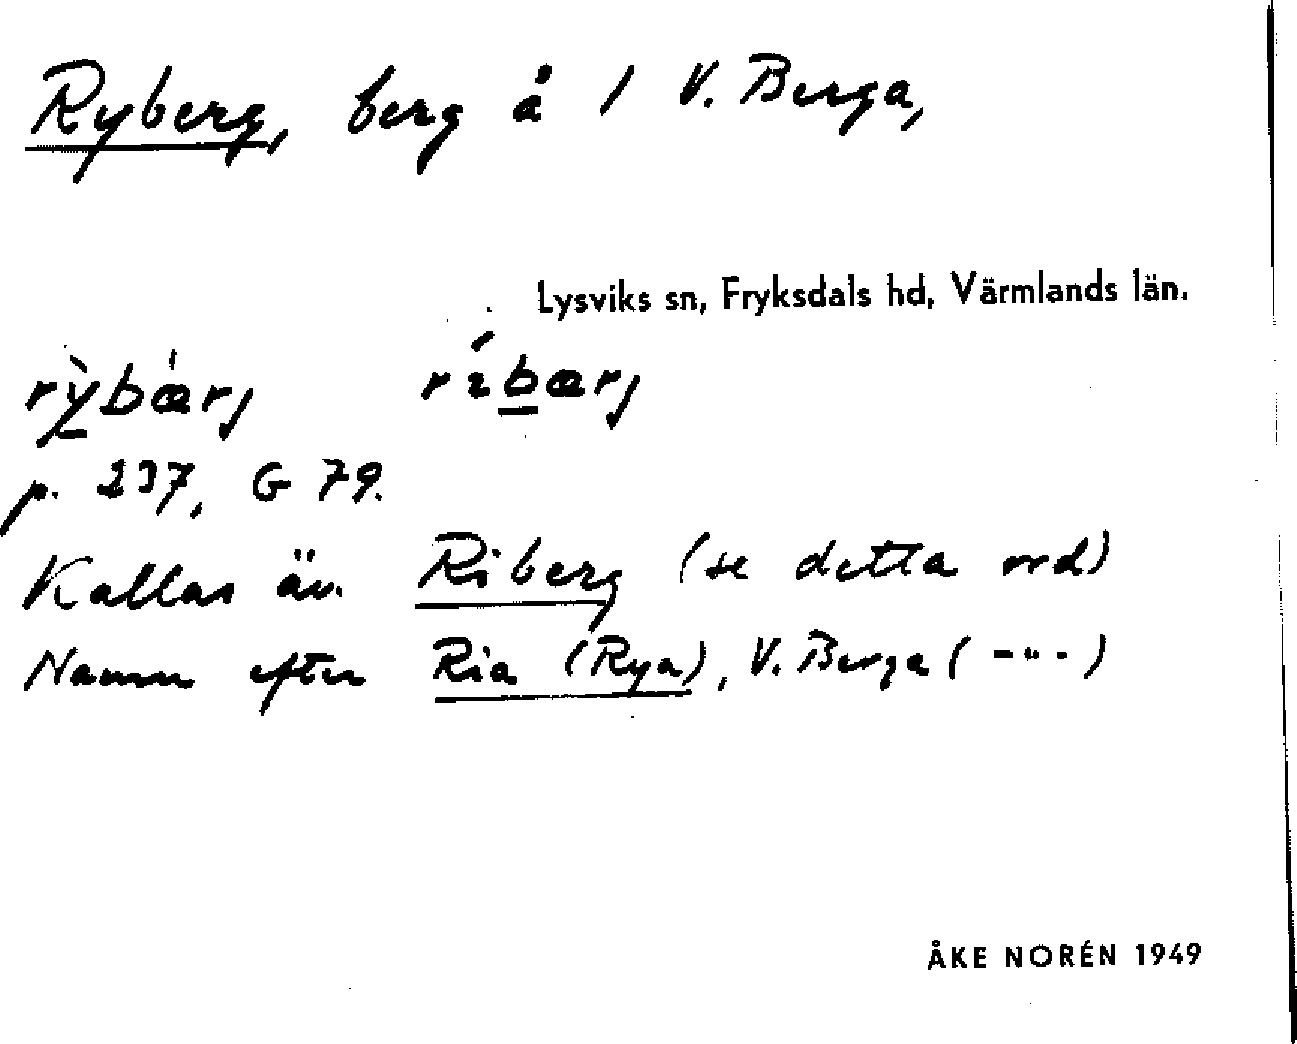 Ryberg, berg å 1 V. Berga,
Lysviks sn, Fryksdals hd, Värmlands län.
rỳbær̀j ríbærj
p. 237, G 79.
Kallas äv. Riberg (se detta ord)
Namn efter Ria (Rya), V. Berga ( -"- )
ÅKE NORÉN 1949